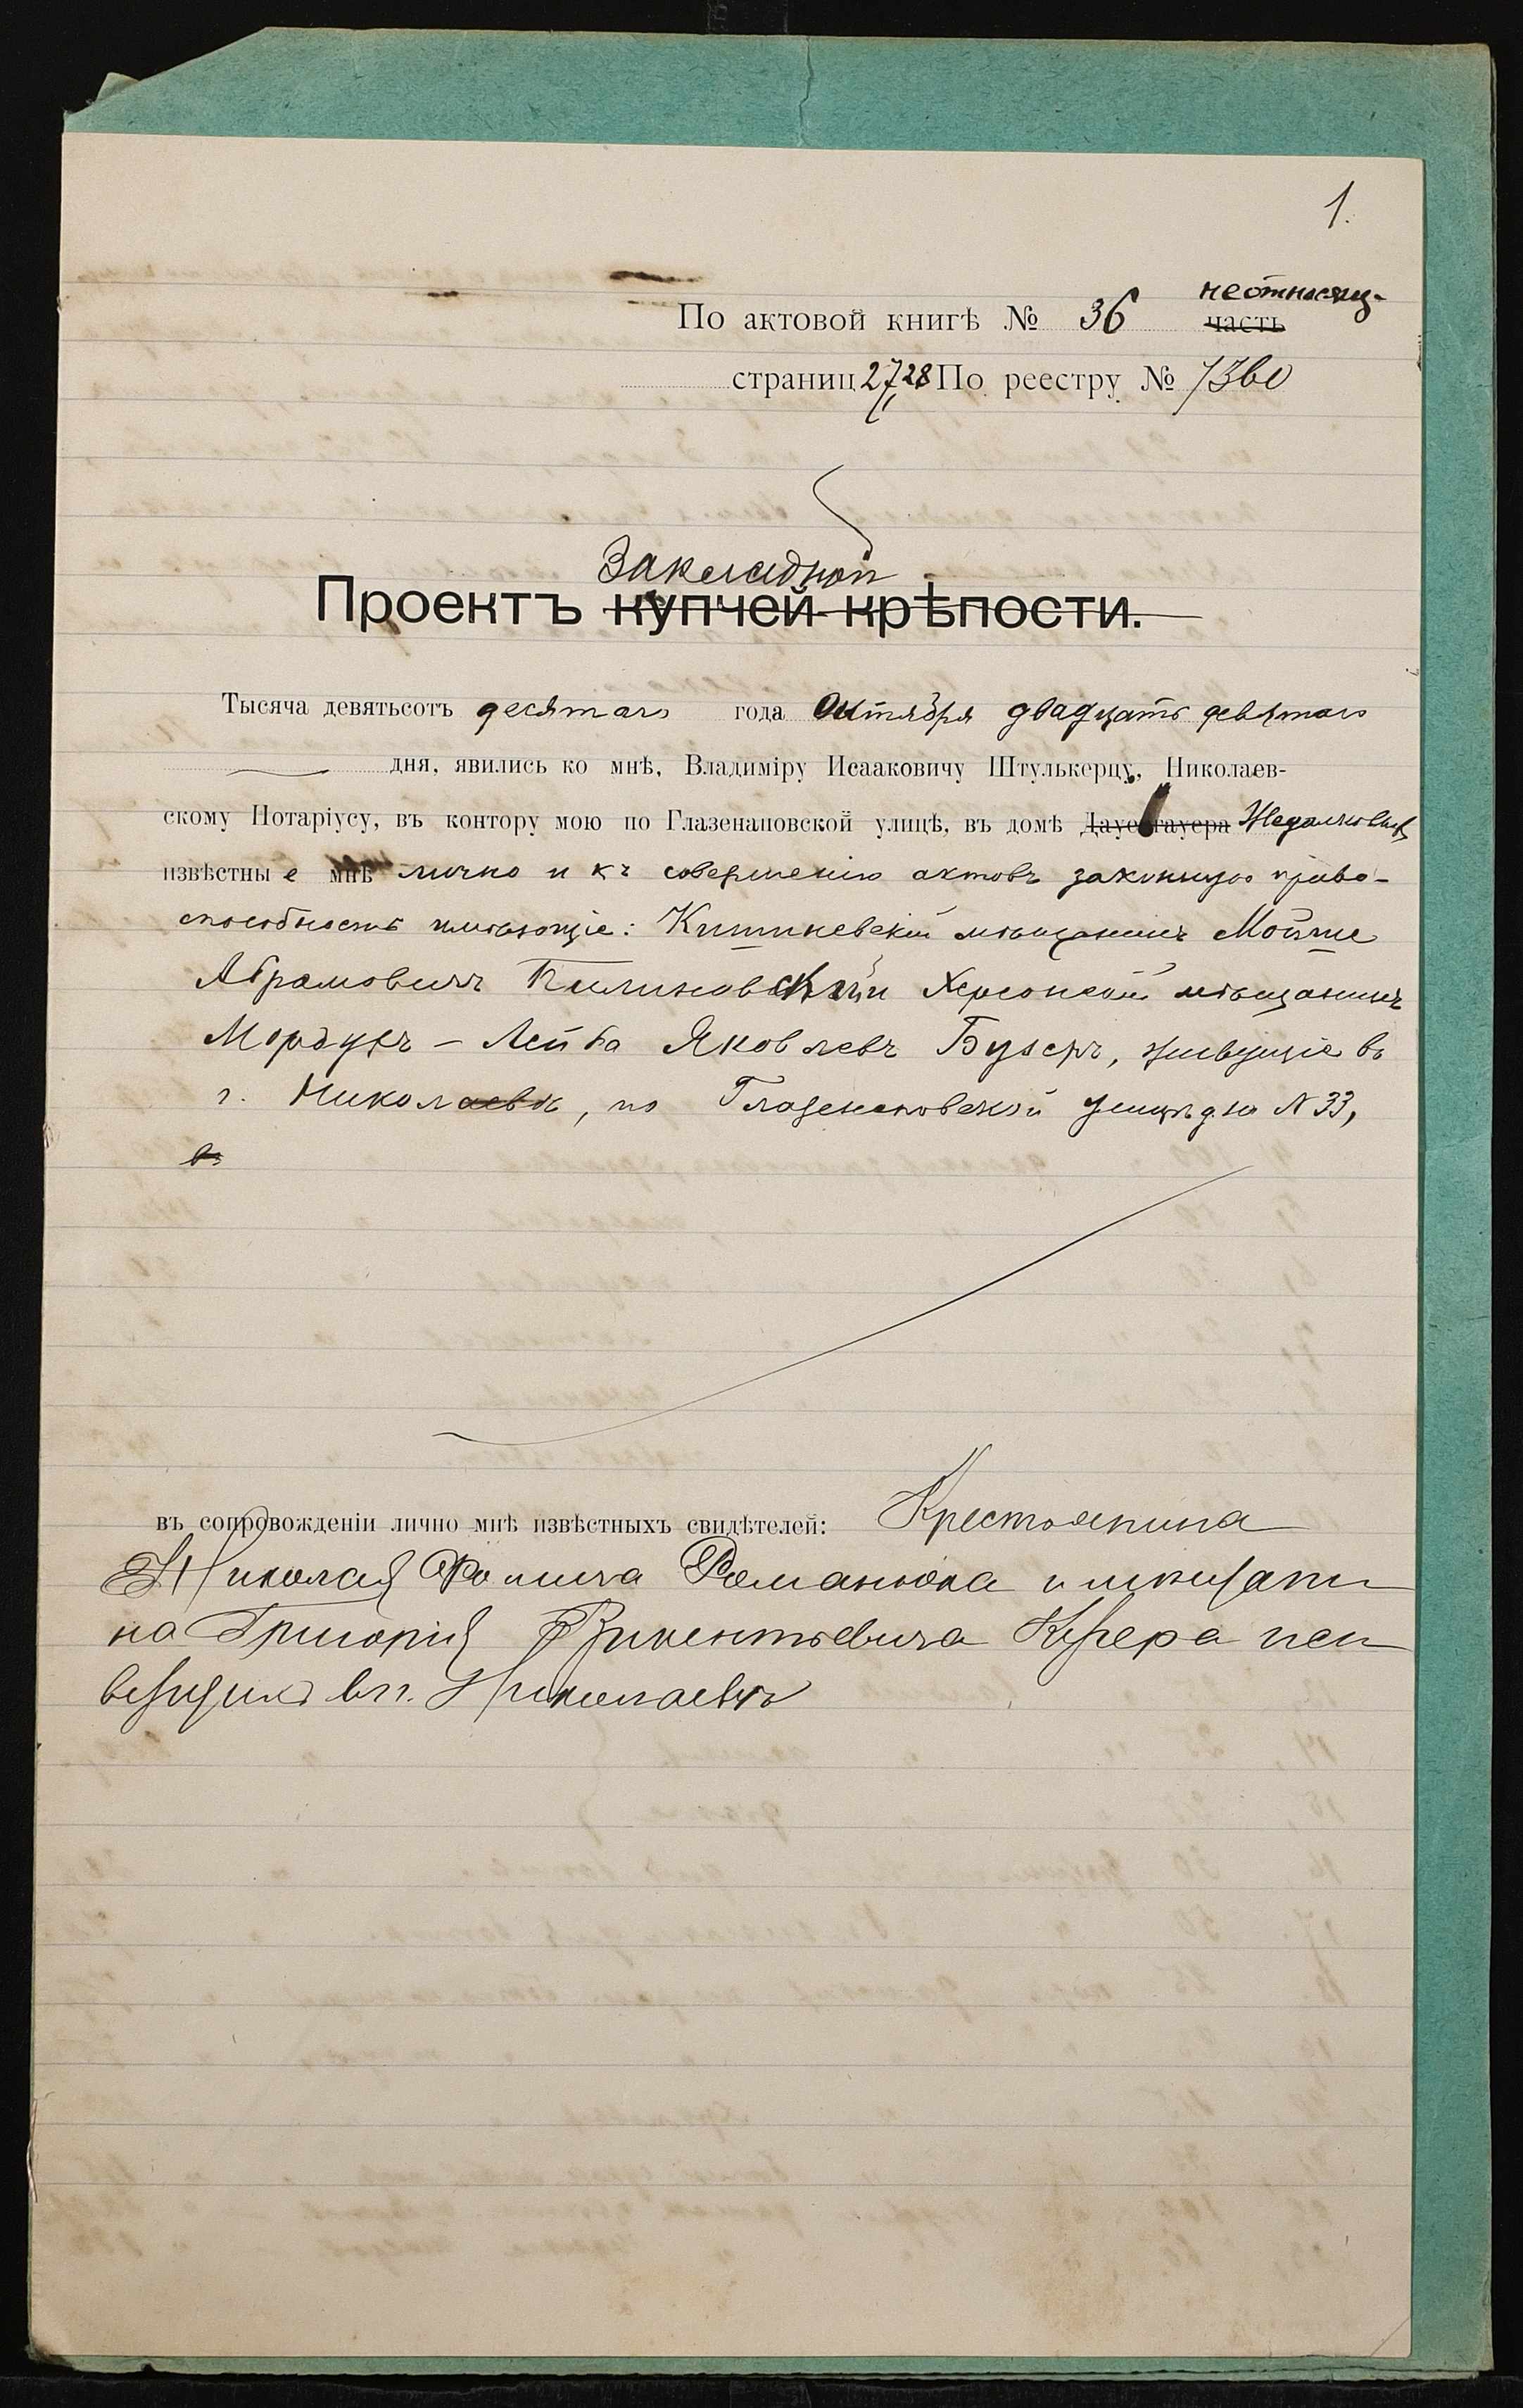 1.
По актовой книгѣ № 36 часть
страниц 27,28 По реестру № 7360
Закладной
Проектъ купчей крѣпости.
Тысяча девятьсотъ десятаго года Октября двадцать девятаго
дня, явились ко мнѣ, Владиміру Исааковичу Штулькерцу, Николаев-
скому Нотаріусу, въ контору мою по Глазенаповской улицѣ, въ домѣ
извѣстны е мнѣ лично и къ совершенію актовъ законную право-
способность имѣющіе: Кишиневскій мѣщанинъ Мойше
Абрамовичъ и Херсонскій мѣщанинъ
Мордухъ - Лейба Яковлевъ живущіе въ
г. Николаевѣ, по Глазенаповской улицѣ д. № 33,
въ
въ сопровожденіи лично мнѣ извѣстныхъ свидѣтелей: Крестьянина
Николая Фомича Романюка и мѣщани
на Григорія Викентьевича жи
вущихъ въ г. Николаевѣ